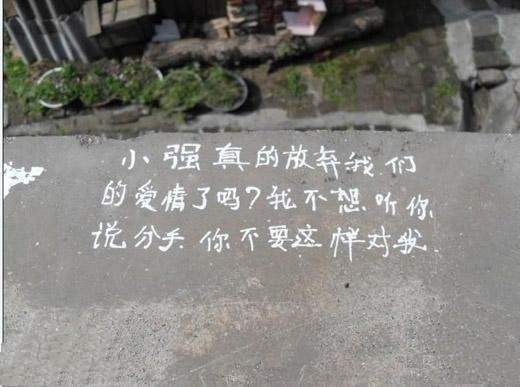 小强真的放弃我们
的爱情了吗?我不想听你
说分手你不要这样对我